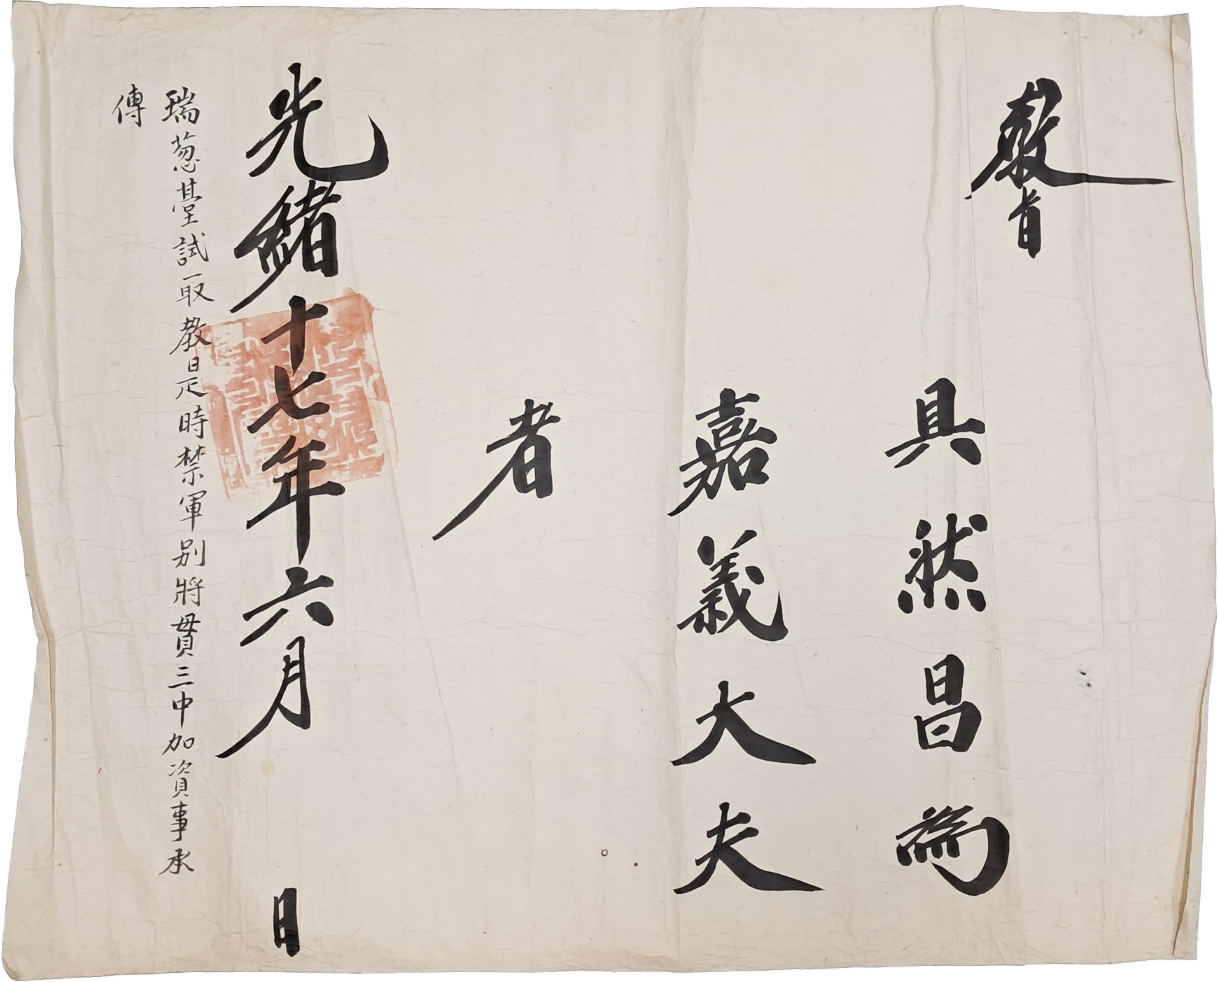 教旨
具然昌為
嘉義大夫
者
光緒十七年六月 日
瑞葱臺試取教是時禁軍別將貫三中加資事承
傳